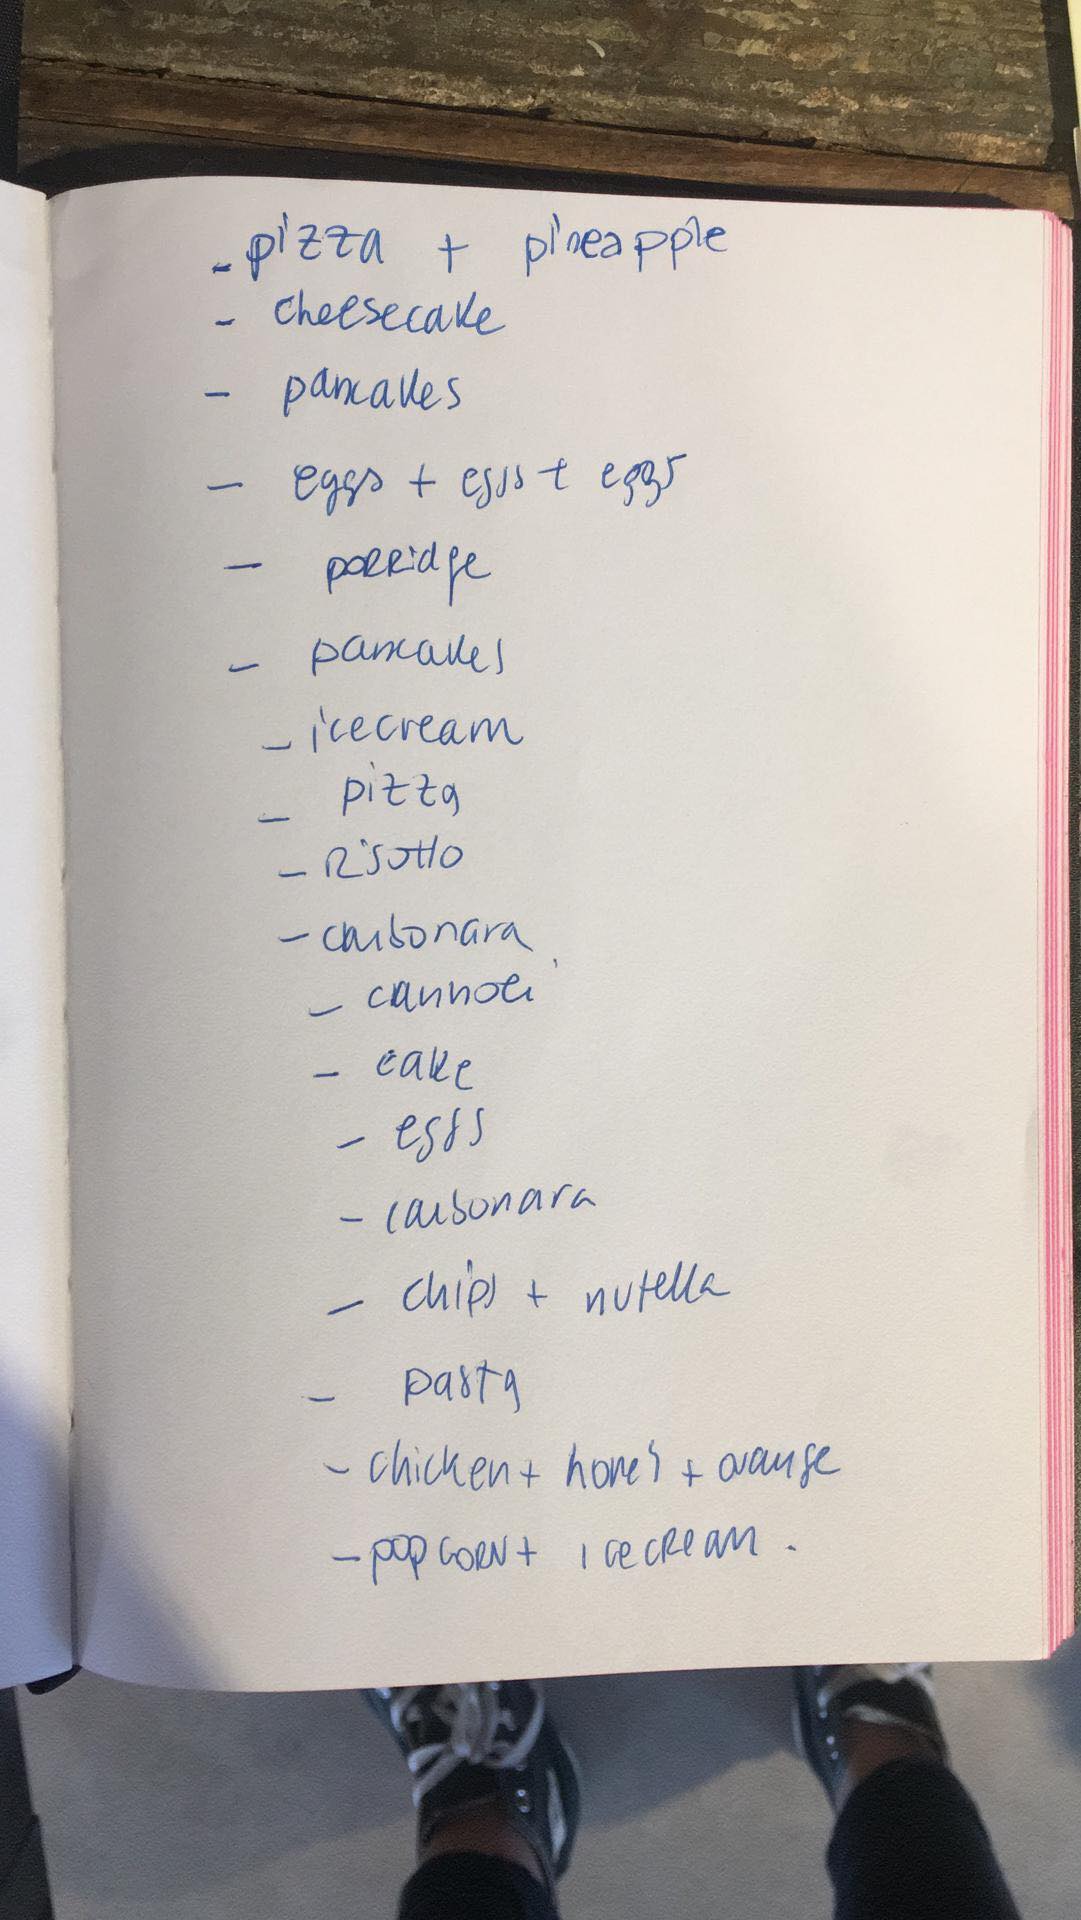 - pizza + pineapple
- cheesecake
- pancakes
- eggs + eggs + eggs
- porridge
- pancakes
- icecream
- pizza
- Risotto
- carbonara
- cannoli
- cake
- eggs
- carbonara
- chips + nutella
- pasta
- chicken + honey + orange
- popcorn + icecream.